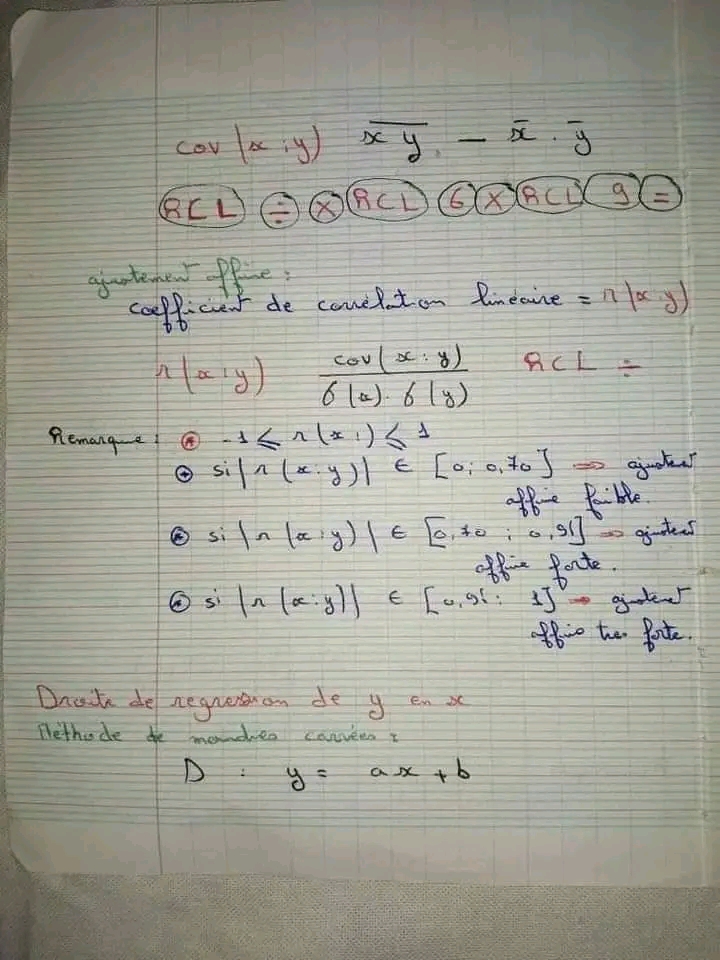 cov(x;y) x̅y̅ - x̄ . ȳ
RCL ÷ × RCL 6 × RCL 9 =
ajustement affine :
coefficient de corrélation linéaire = r(x;y)
r(x;y) cov(x:y) / б(x). б(y) RCL ÷
Remarque : * -1 ⩽ r(x;) ⩽ 1
* si |r(x:y)| ∈ [0; 0,70] ⇒
affine faible.
* si |r(x:y)| ∈ [0,70 ; 0,91] ⇒
affine forte.
* si |r(x:y)| ∈ [0,91: 1] ⇒
affine tres forte.
Droite de regression de y en x
Méthode de moindres carrées :
D : y = ax + b